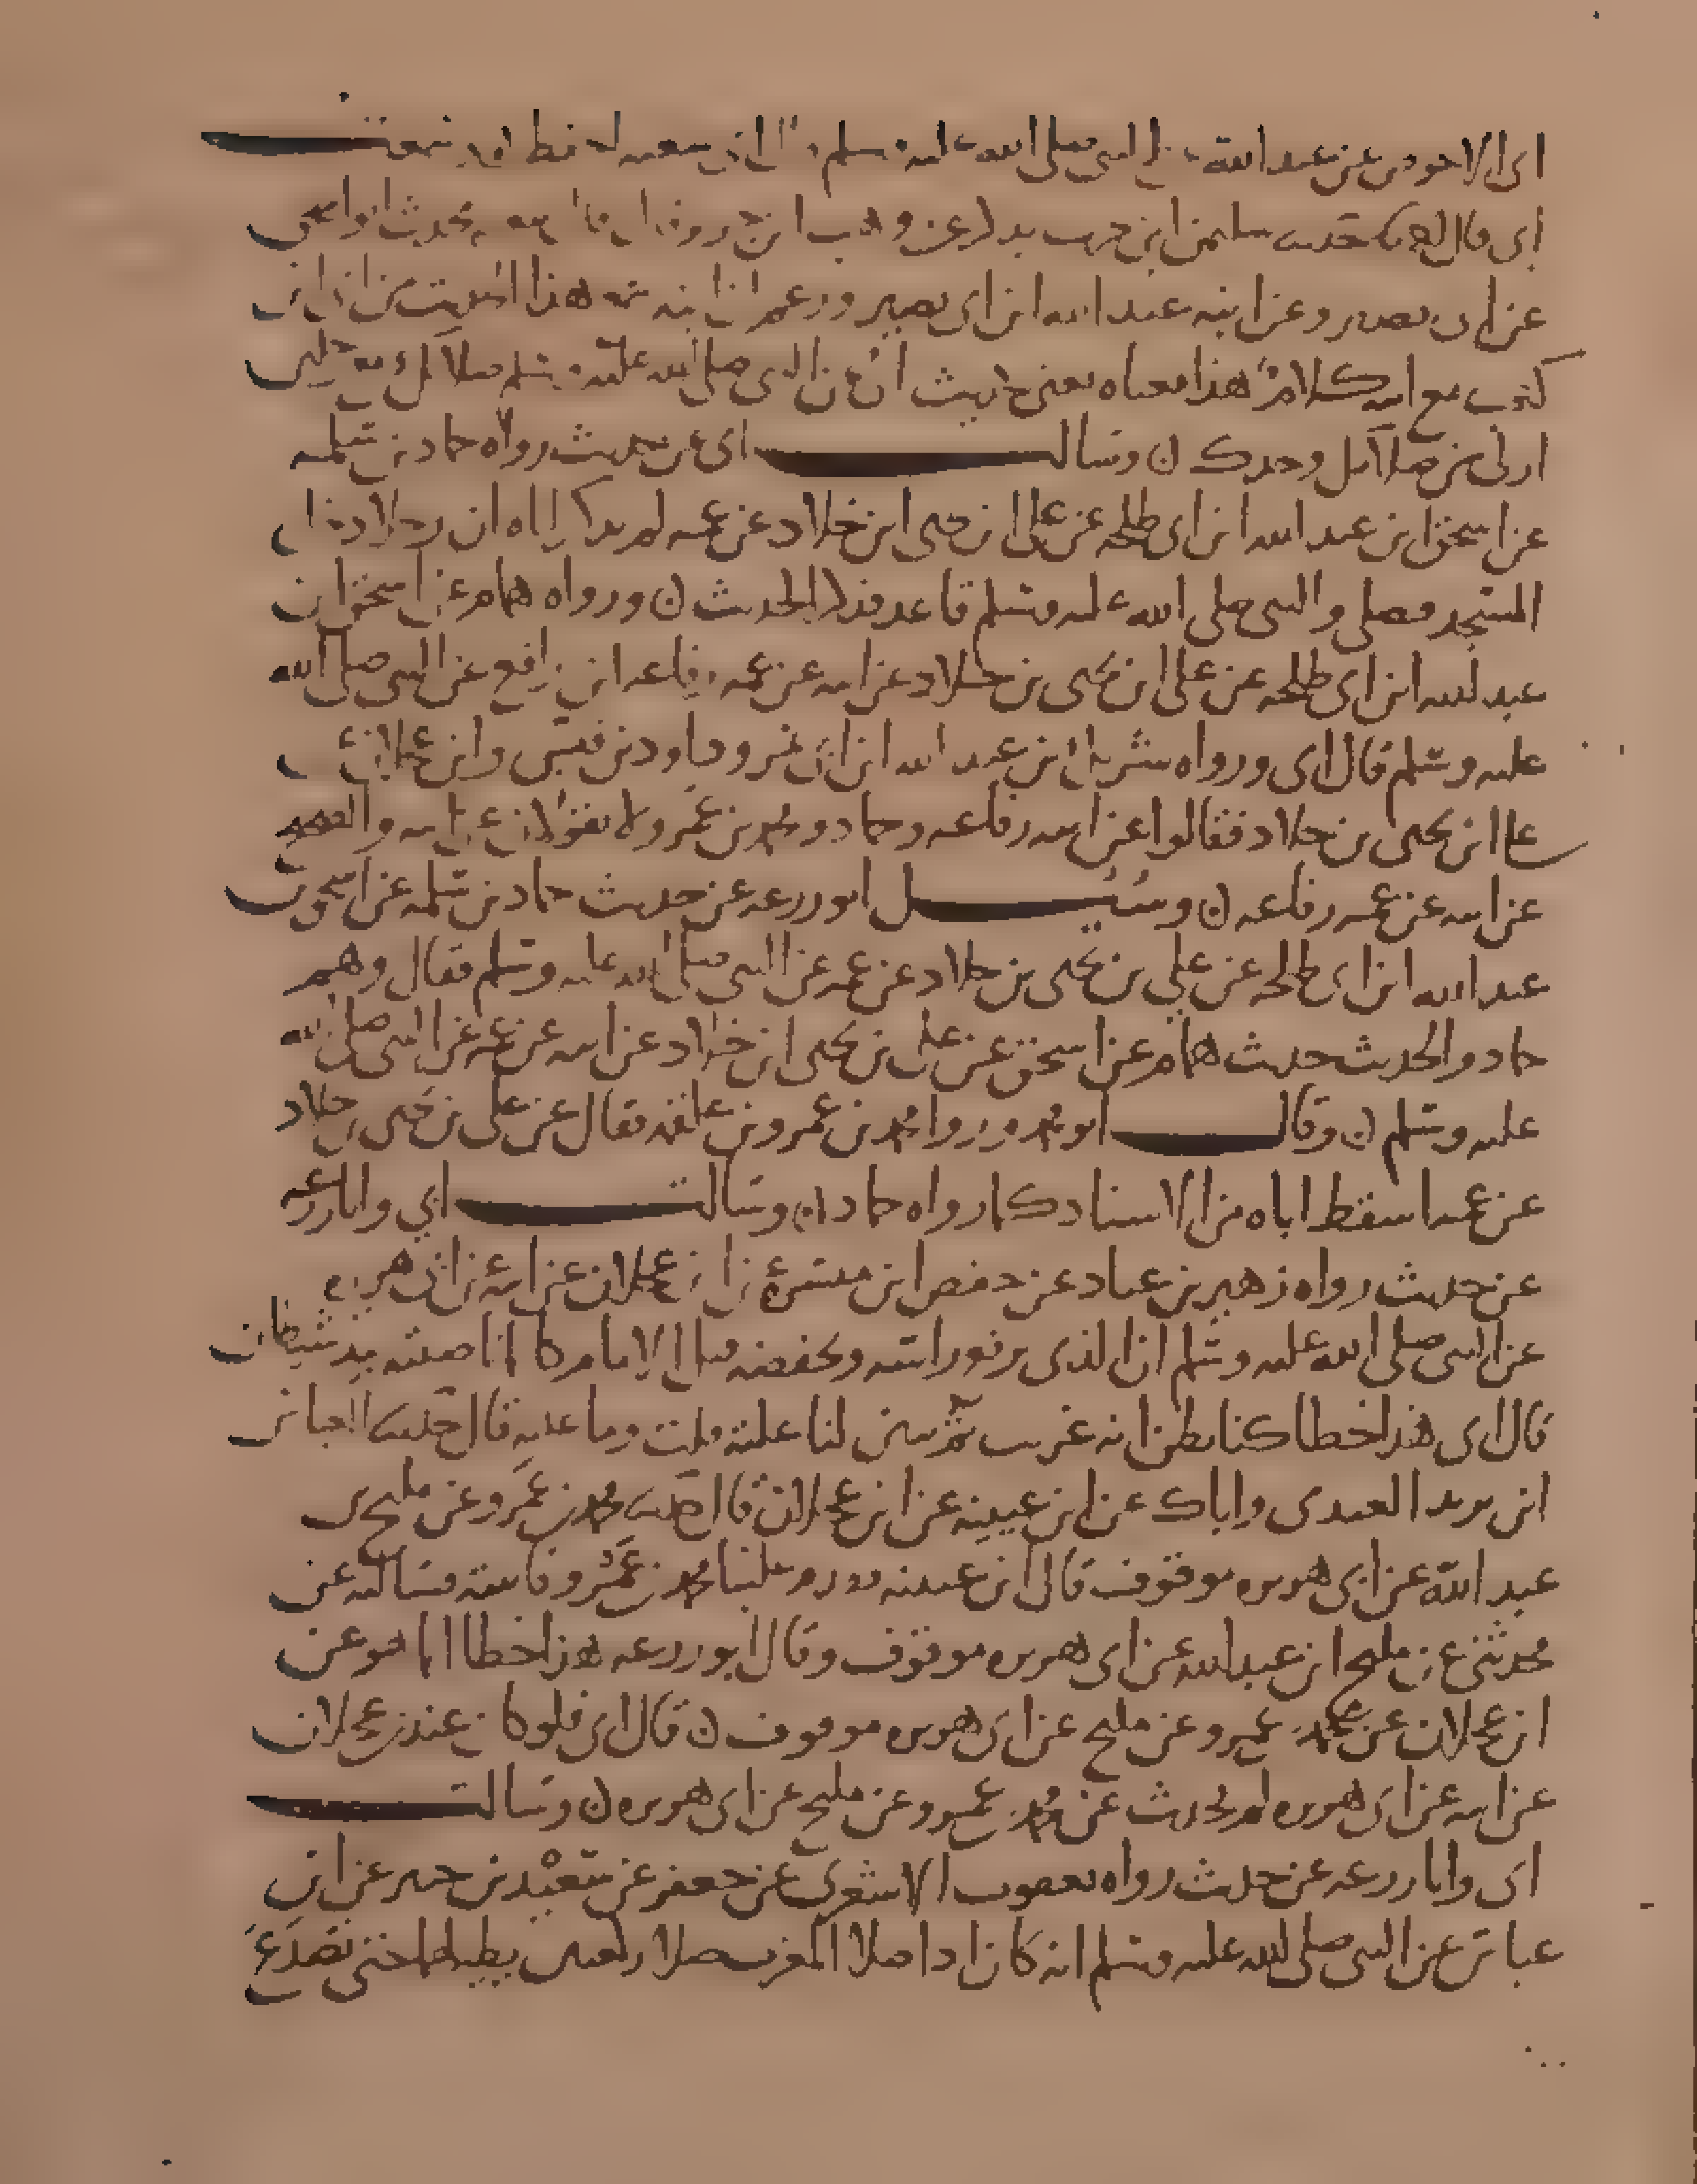 ابى الاحوص عن عبد الله عن النبى صلى الله عليه وسلم قال ابى سعيد لم قط وسمعت
ابى قال حدثنا سليمن ابن حرب عن وهب ابن جرير قال يحدث ابو اسحق
عن ابى بصير وعن ابنه عبد الله ابن ابى بصير هذا الحديث من ابى ابن
كعب مع ابيه كلام هذا معناه يعنى حديث ابى عن النبى صلى الله عليه وسلم صلاتك مع رجلين
ازكى من صلاتك وحدك ن وسالت ابى عن حديث رواه حماد بن سلمه
عن اسحق ابن عبد الله ابن ابى طلحه عن على ابن يحيى ابن خلاد عن عمه لم يذكر اباه ان رجلا دخل
المسجد فصلى والنبى صلى الله عليه وسلم قاعد فذكر الحديث ن ورواه همام عن اسحق ابن
عبد الله ابن ابى طلحه عن على ابن يحيى بن خلاد عن ابيه عن عمه رفاعه ابن رافع عن النبى صلى الله
عليه وسلم قال ابى ورواه شريك ابن عبد الله ابن ابى نمر وداود بن قيس وابن عجلان عن
على ابن يحيى بن خلاد فقالوا عن ابيه عن رفاعه وحماد ومحمد بن عمرو لا يقولان عن ابيه والصحيح
عن ابيه عن عمه رفاعه ن وسئل ابو زرعه عن حديث حماد بن سلمه عن اسحق بن
عبد الله ابن ابى طلحه عن علي بن يحيى بن خلاد عن عمه عن النبى صلى الله عليه وسلم فقال وهم
حماد والحديث حديث همام عن اسحق عن على بن يحيى ابن خلاد عن ابيه عن عمه عن النبى صلى الله
عليه وسلم ن وقال ابو محمد وروا محمد بن عمرو بن علقمه فقال عن على بن يحيى بن خلاد
عن عمه اسقط اباه من الاسناد كما رواه حماد ن وسالت ابي وابا زرعه
عن حديث رواه زهير بن عباد عن حفص ابن ميسره عن ابن عجلان عن ابيه عن ابى هريره
عن النبى صلى الله عليه وسلم ان الذى يرفع راسه ويخفضه قبل الامام كانما ناصيته بيد شيطان
قال ابى هذا خطا كنا نظن انه غريب ثم تبين لنا علته قلت وما علته قال حدثنا العباس
ابن يزيد العبدى واياك عن ابن عيينه عن ابن عجلان قال حدثنا محمد بن عمرو عن مليح بن
عبد الله عن ابى هريره موقوف قال ابن عيينه قدم علينا محمد بن عمرو فاتيته فسالته عن
فحدثنى عن مليح ابن عبد الله عن ابى هريره موقوف وقال ابو زرعه هذا خطا انما هو عن
ابن عجلان عن محمد بن عمرو عن مليح عن ابى هريره موقوف ن قال ابى فلو كان عند ابن عجلان
عن ابيه عن ابى هريره لم يحدث عن محمد بن عمرو عن مليح عن ابى هريره ن وسالت
ابى وابا زرعه عن حديث رواه يعقوب الاشعرى عن جعفر عن سعيد بن جبير عن ابن
عباس عن النبى صلى الله عليه وسلم انه كان اذا صلا المغرب صلا ركعتين يطيلهما حتى يتصدع